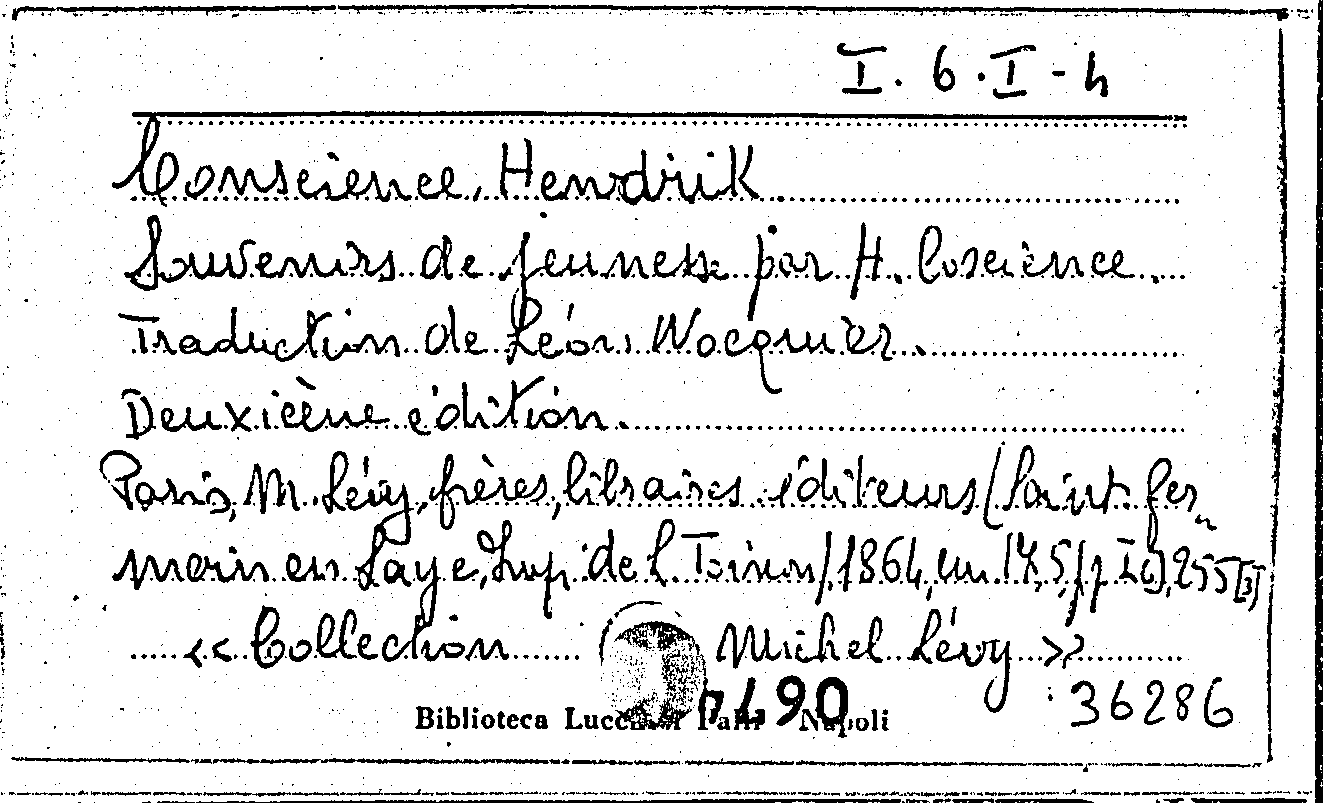 I. 6. I - h
Conscience, Hendrik
Souvenirs de jeunesse par H. Coscience.
Traduction de Léon Wocquier.
Deuxième édition.
Paris, M. Lévy, frères, libraires éditeurs (Saint Ger
main en Laye, Imp. de L. Toinon), 1864, cm. 17,5, pp. 255
<< Collection Michel Lévy >>
36286
7490
Biblioteca Lucchesi Palli Napoli